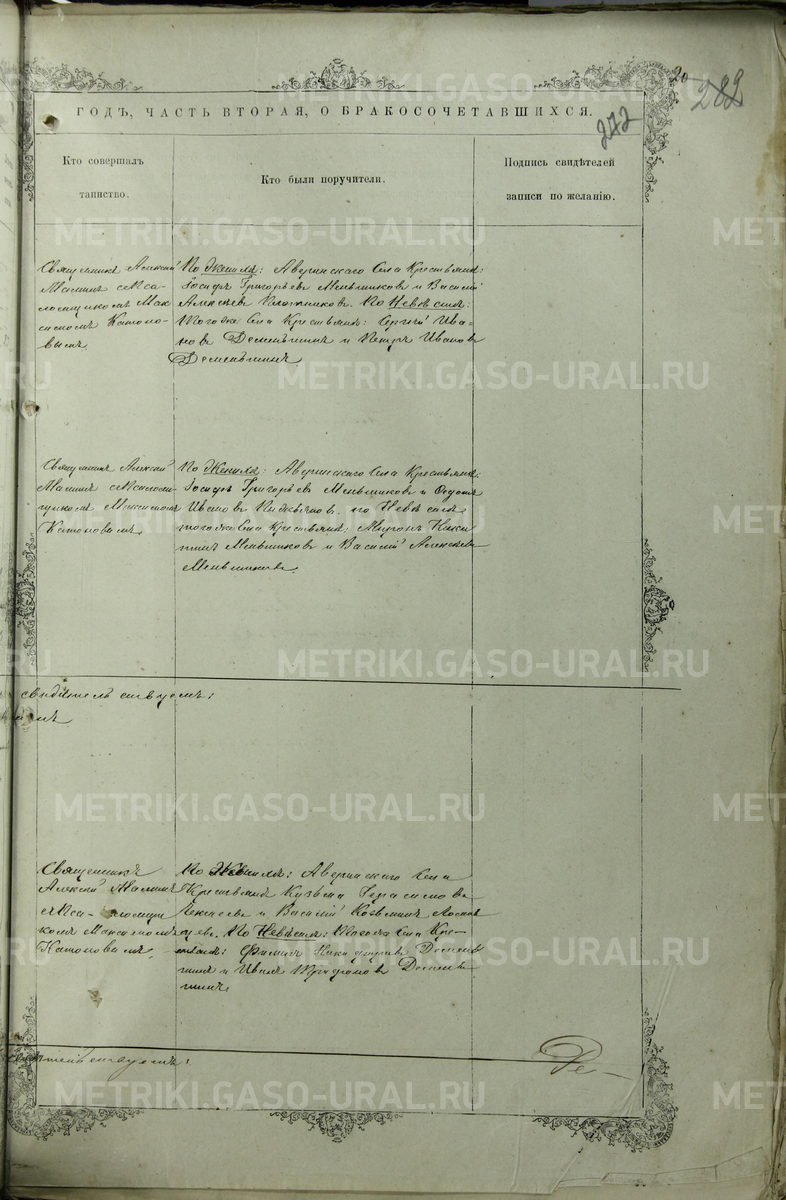 20
282
272
ГОДЪ, ЧАСТЬ ВТОРАЯ, О БРАКОСОЧЕТАВШИХСЯ.
Кто совершалъ
таинство.
Кто были поручители.
Подпись свидѣтелей
записи по желанію.
Священникъ Алексій
Маминъ съ Пса-
ломщикомъ Мак-
симомъ Катоно-
вымъ
По Женихѣ: Аверинскаго Села Крестьяне:
Іосифъ Григорьевъ Меньшиковъ и Василій
Алексѣевъ Плотниковъ. По Невѣстѣ:
Тогоже Села Крестьяне: Сергій Ива-
новъ Деменьшинъ и Петръ Ивановъ
Деменьшинъ
Священникъ Алексій
Маминъ съ Псалом-
щикомъ Максимомъ
Катоновымъ
По Женихѣ: Аверинскаго Села Крестьяне:
Іосифъ Григорьевъ Меньшиковъ и Ѳедотъ
Ивановъ по Невѣстѣ
тогоже Села Крестьяне: Миронъ Ники-
тинъ Меньшиковъ и Василій Алексѣевъ
Меньшиковъ.
свидѣтельствуемъ:
Священникъ
Алексій Маминъ
съ Пса-ломщи
комъ Максимомъ
Катоновымъ.
По Женихѣ: Аверинскаго Села
Крестьяне Кузьма Герасимовъ
и Василій Козьминъ
По Невѣстѣ: Тогоже Села Крес-
тьяне: Филиппъ Никифоровъ Демень-
шинъ и Иванъ Трифоновъ Деменьь-
шинъ.
METRIKI.GASO-URAL.RU